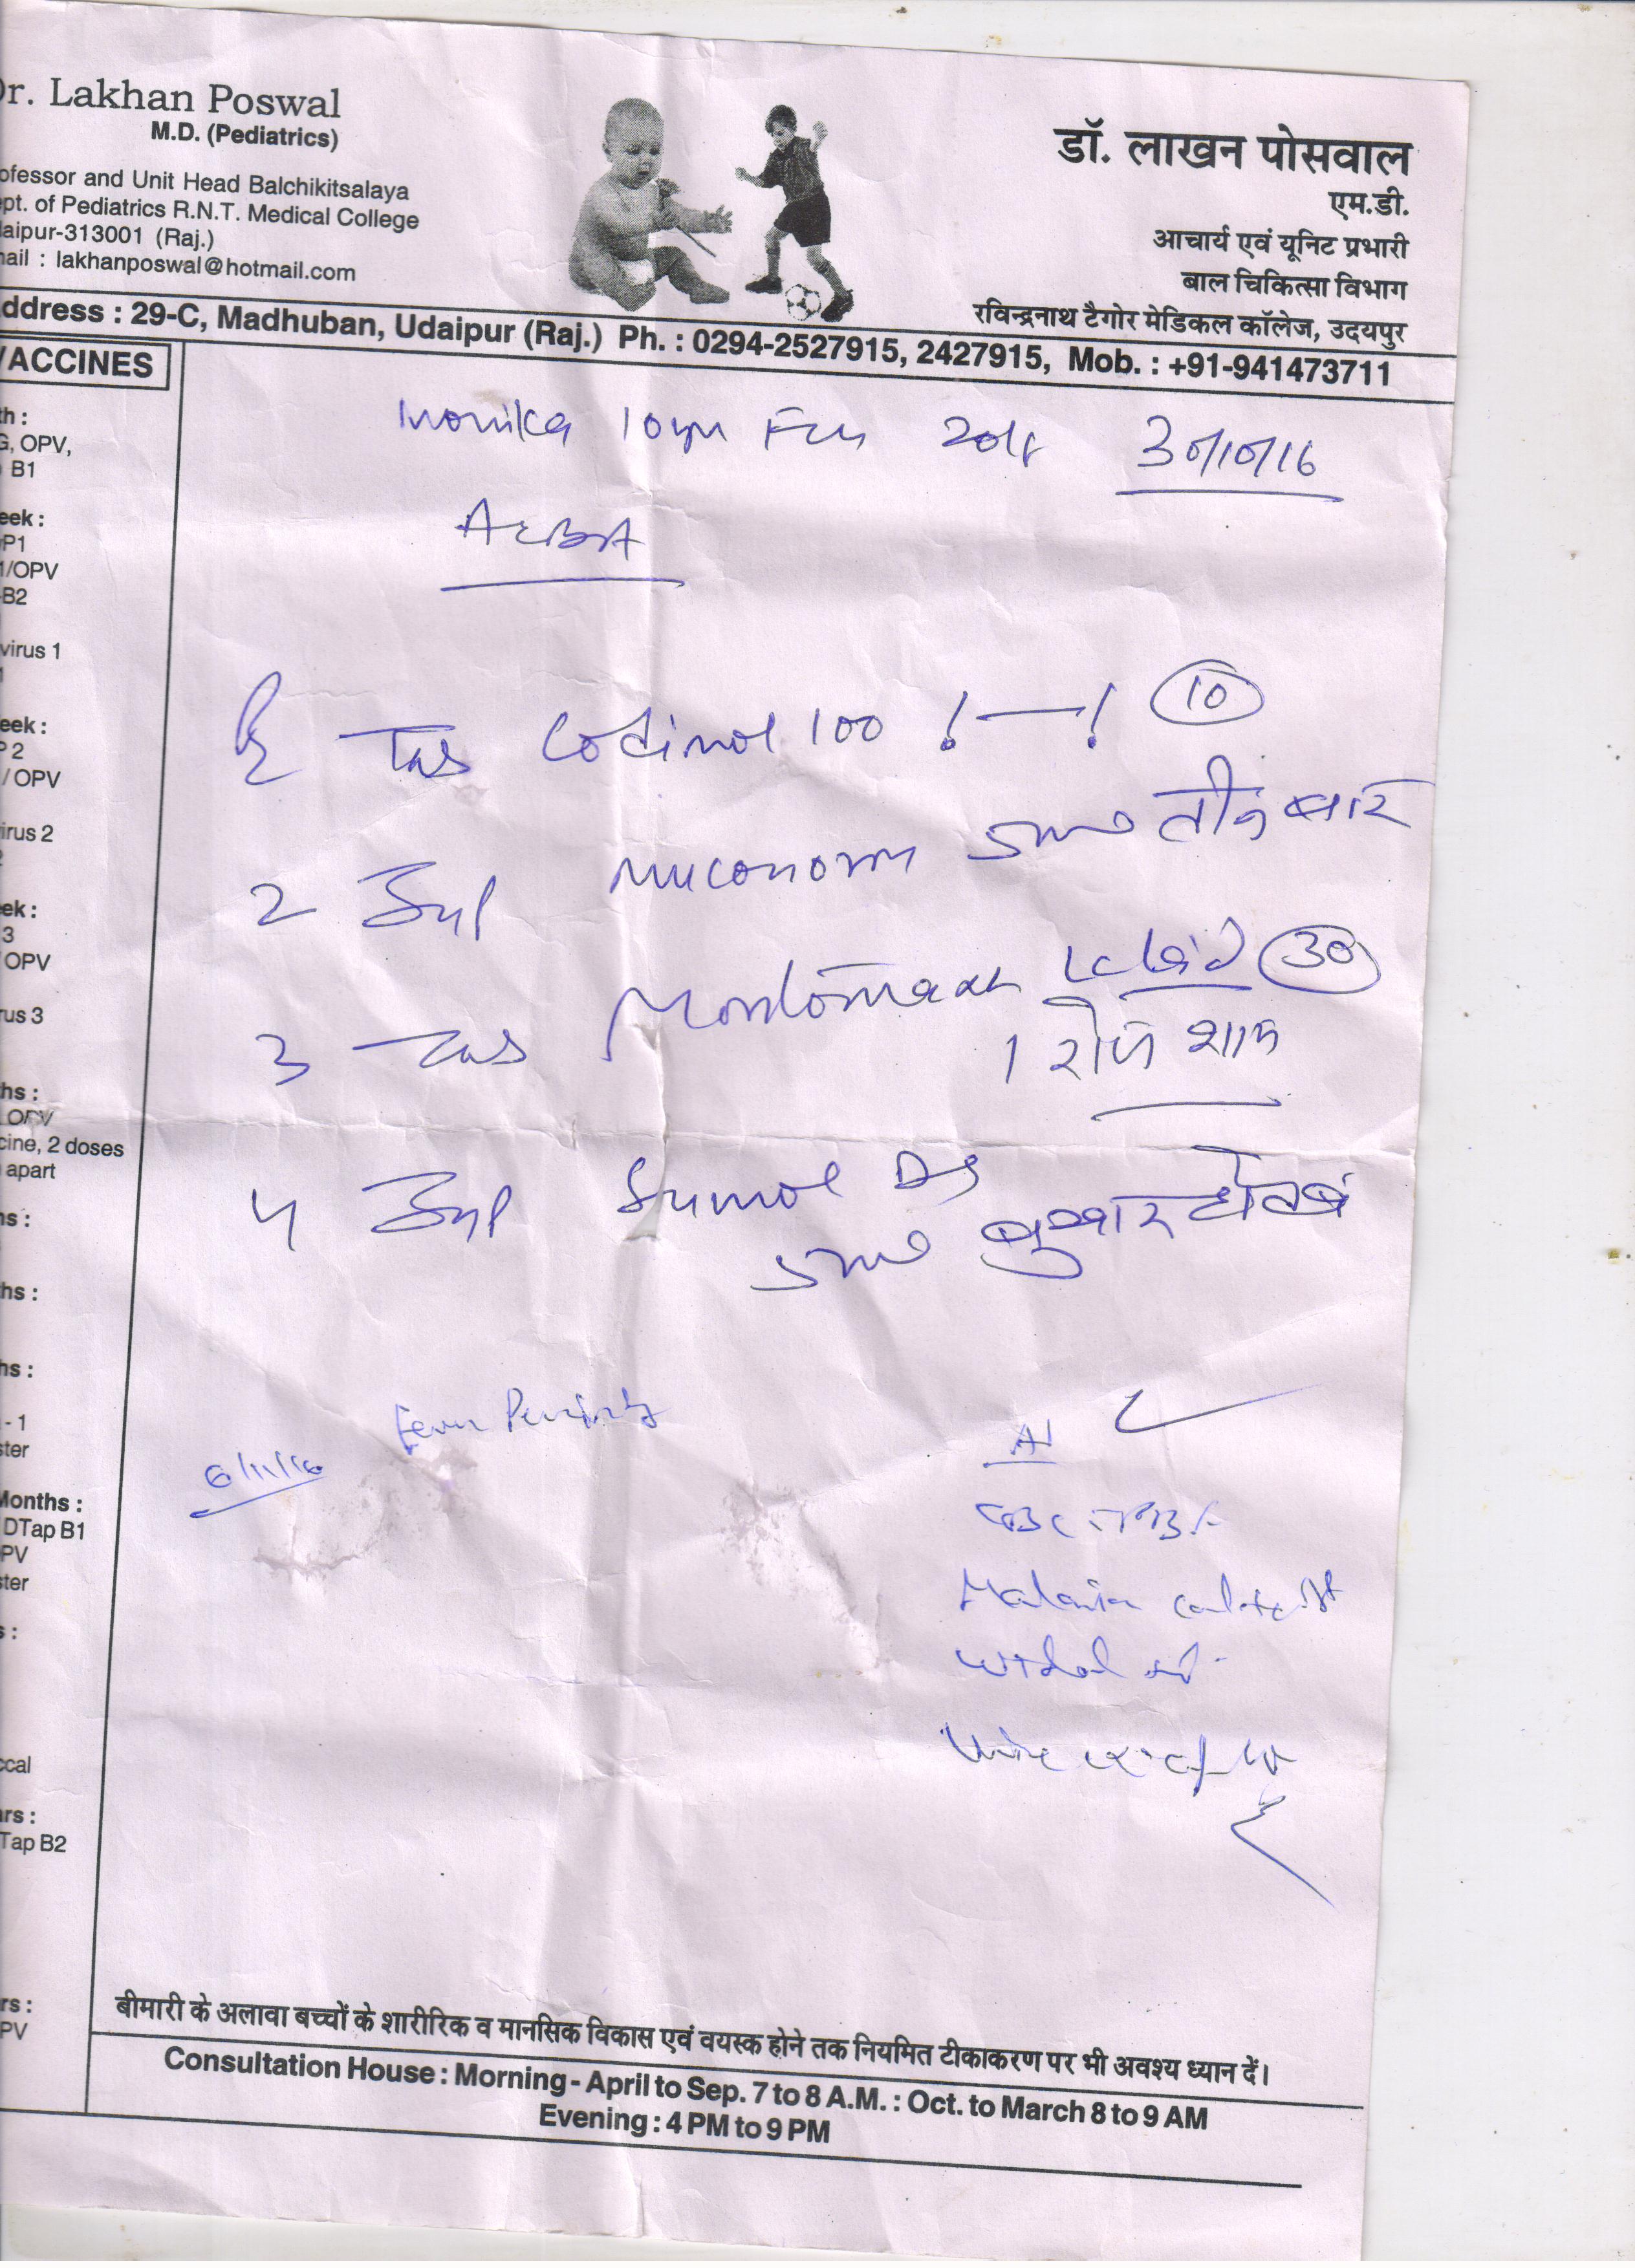 Dr. Lakhan Poswal
M.D. (Pediatrics)
ofessor and Unit Head Balchikitsalaya
ept. of Pediatrics R.N.T. Medical College
daipur-313001 (Raj.)
mail : lakhanposwal@hotmail.com
डॉ. लाखन पोसवाल
एम.डी.
आचार्य एवं यूनिट प्रभारी
बाल चिकित्सा विभाग
रविन्द्रनाथ टैगोर मेडिकल कॉलेज, उदयपुर
ddress : 29-C, Madhuban, Udaipur (Raj.) Ph. : 0294-2527915, 2427915, Mob. : +91-941473711
VACCINES
th :
G, OPV,
B1
eek :
P1
1/OPV
-B2
virus 1
1
eek :
P 2
/ OPV
irus 2
2
ek :
3
OPV
rus 3
ths :
OPV
cine, 2 doses
apart
ns :
hs :
hs :
- 1
ster
Months :
DTap B1
PV
ster
s :
ccal
ars :
Tap B2
rs :
PV
Monika 10yr 30/10/16
Tab 100 10
2 Syp Muconorm 5ml तीन बार
3 Tab 30
1 रोज शाम
4 Syp Sumol DS
5ml बुखार हो तब
6/11/16 Fever
CBC
Malaria
Widal
Urine
बीमारी के अलावा बच्चों के शारीरिक व मानसिक विकास एवं वयस्क होने तक नियमित टीकाकरण पर भी अवश्य ध्यान दें।
Consultation House : Morning - April to Sep. 7 to 8 A.M. : Oct. to March 8 to 9 AM
Evening : 4 PM to 9 PM